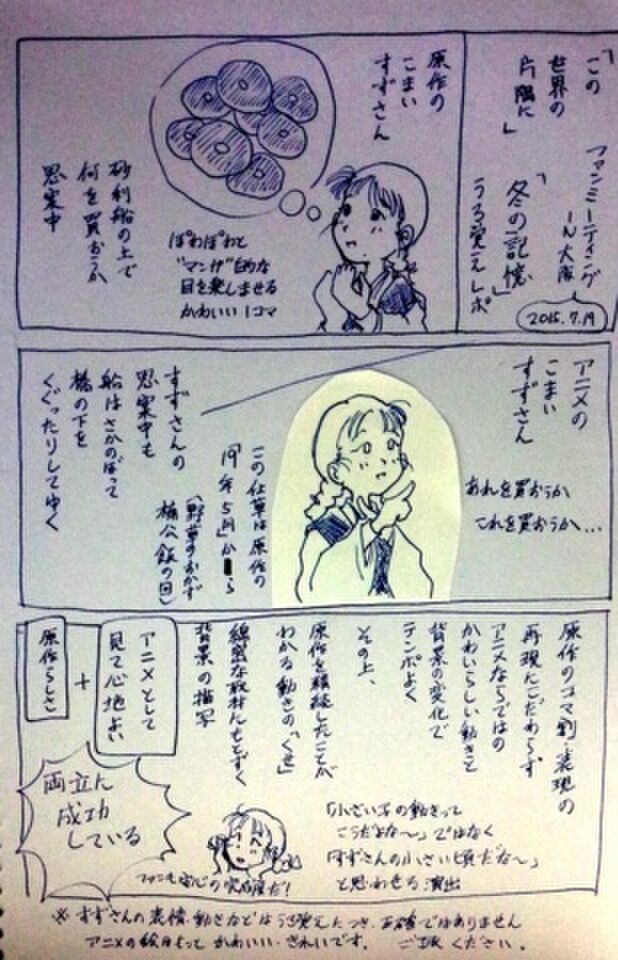 「この
世界の
片隅に」
ファンミーティング
IN大阪
「冬の記憶」
うろ覚えレポ
2015.7.19
原作の
こまい
すずさん
ぽわぽわと
"マンガ"的な
目を楽しませる
かわいい1コマ
砂利船の上で
何を買おうか
思案中
アニメの
こまい
すずさん
あれを買おうか
これを買おうか…
この仕草は原作の
「19年5月」から
(野草のおかず
楠公飯の回)
すずさんの
思案中も
船はさかのぼって
橋の下を
くぐったりしてゆく
原作のコマ割・表現の
再現にこだわらず
アニメならではの
かわいらしい動きと
背景の変化で
テンポよく
その上、
原作を
わかる動きの「くせ」
綿密な取材にもとずく
背景の描写
アニメとして
見て心地よい
+
原作らしさ
両立に
成功
している
「小さい子の動きって
こうだよな〜」ではなく
「すずさんの小さい頃だな〜」
と思わせる演出
ファンも安心の完成度だ!
※すずさんの表情・動きなどはうろ覚えにつき正確ではありません
アニメの絵はもっとかわいい・きれいです。ご了承ください。